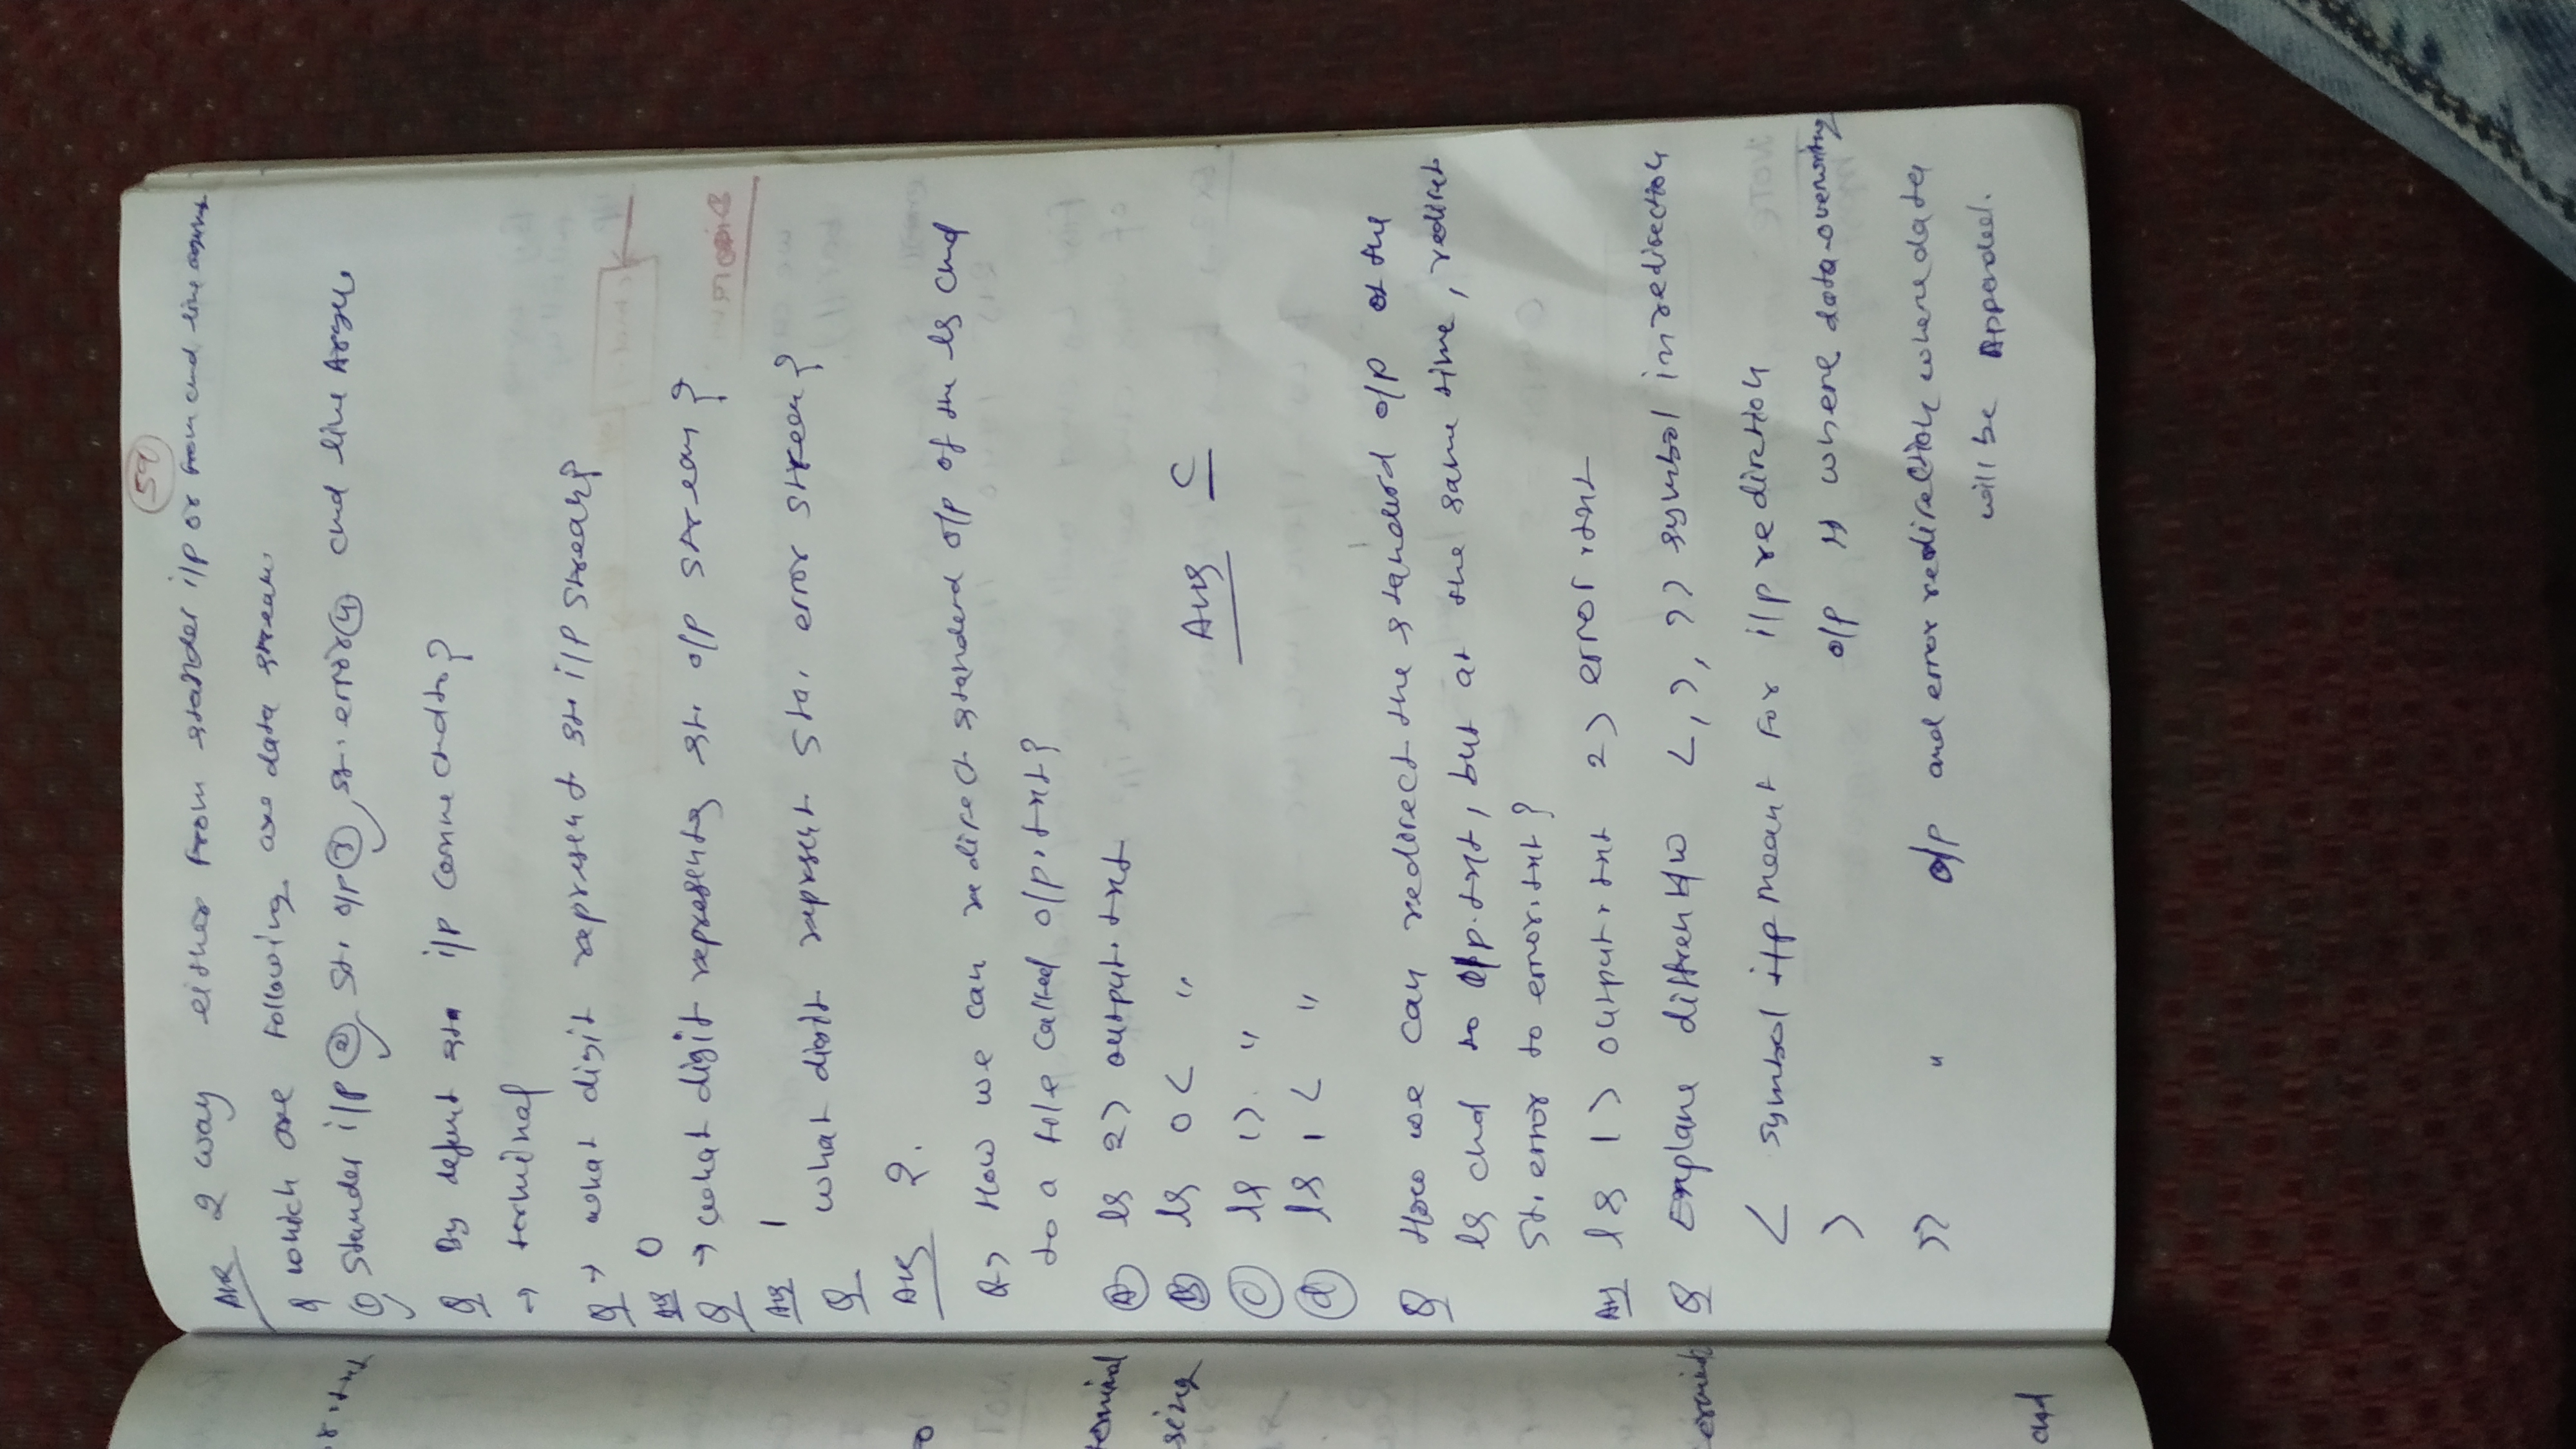 59
Ans 2 way either from stander i/p or from cmd line argumt
Q which are following are data stream
① Stander i/p ② St. o/p ③ St. error ④ cmd line Argu.
Q By defult sta i/p connectdto?
→ terminal
Q → what digit reprsent st. i/p stream?
Ans 0
Q → what digit represents st. o/p stream?
Ans 1
Q what digit reprsent sta. error stream?
Ans 2.
Q> How we can redirect standerd o/p of the ls cmd
to a file called o/p.txt?
Ⓐ ls 2> output.txt
Ⓑ ls 0< "
Ⓒ ls 1>. "
Ⓓ ls 1< "
Ans C
Q How we can redirect the standerd o/p of the
ls cmd to o/p.txt, but at the same time, redirct
St. error to error.txt?
Ans ls 1> output.txt 2> error.txt
Q Explane diffren b/w <, >, >> symbol in redirection
< symbol i/p meant for i/p redirection
> o/p where data overwriting
>> " o/p and error redirection where data
will be Appended.
or
terminal
sing
and